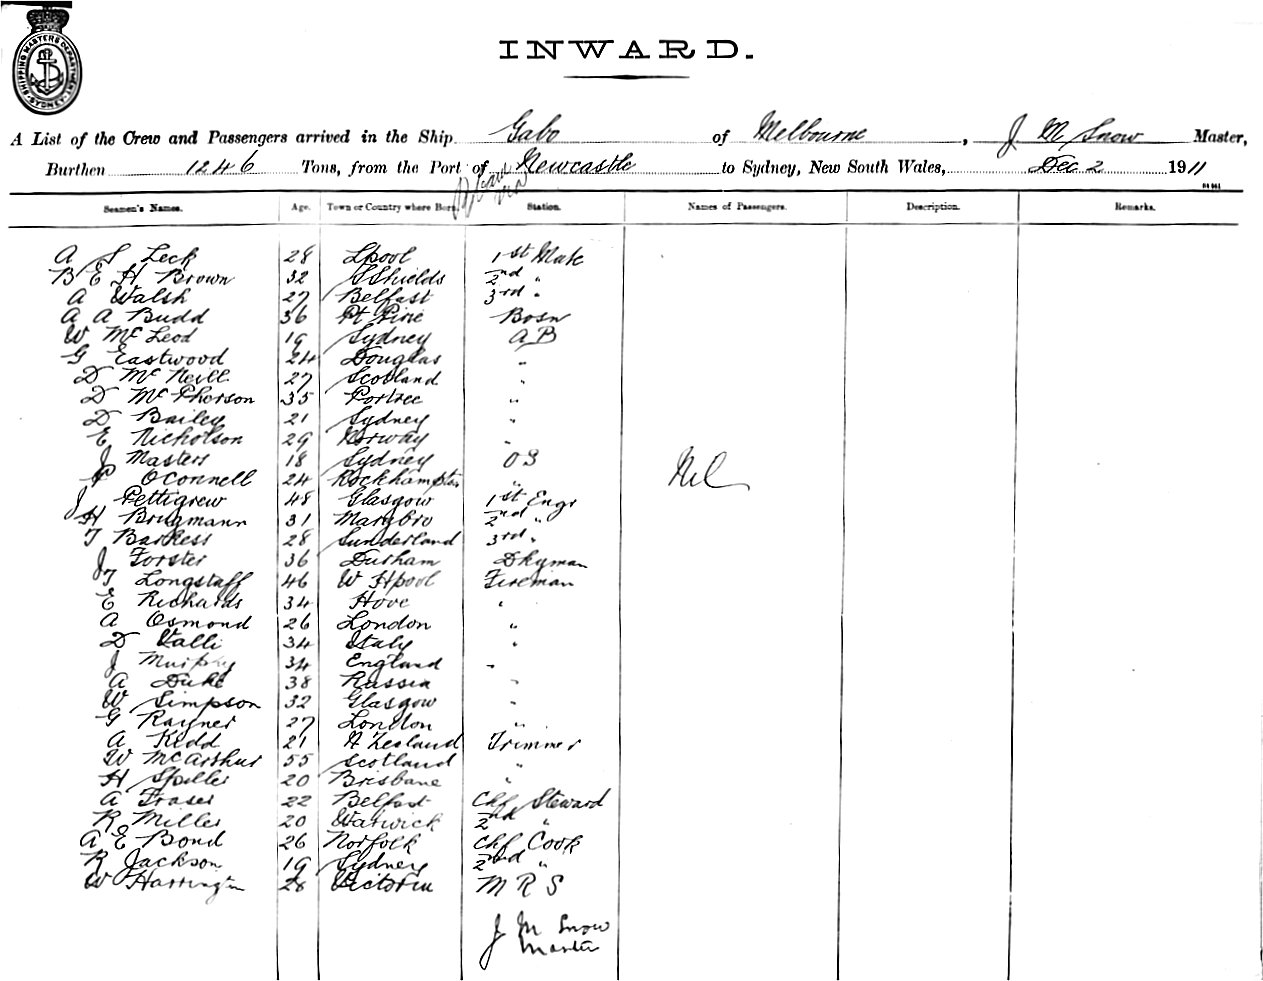 SHIPPING MASTERS DEPARTMENT SYDNEY
INWARD.
A List of the Crew and Passengers arrived in the Ship Gabo of Melbourne, J M Snow Master,
Burthen 1246 Tons, from the Port of Newcastle to Sydney, New South Wales, Dec 2 1911
Seamen's Names. Age. Town or Country where Born. Station. Names of Passengers. Description. Remarks.
A S Leck 28 Lpool 1st Mate
B E H Brown 32 S Shields 2nd "
A Walsh 27 Belfast 3rd "
A A Budd 36 Pt Pirie Bosn
W McLeod 19 Sydney A B
G Eastwood 24 Douglas "
D McNeill 27 Scotland "
D McPherson 35 Portree "
D Bailey 21 Sydney "
E Nicholson 29 Norway "
J Masters 18 Sydney O S
P OConnell 24 Rockhampton " Nil
J Pettigrew 48 Glasgow 1st Engr
H Brugmann 31 Marybro 2nd "
T Barkess 28 Sunderland 3rd "
J Forster 36 Durham Dkyman
T Longstaff 46 W Hpool Fireman
E Richards 34 Hove "
A Osmond 26 London "
D Valli 34 Italy "
J Murphy 34 England "
A Duke 38 Russia "
W Simpson 32 Glasgow "
G Rayner 27 London "
A Kidd 21 N Zealand Trimmer
W McArthur 55 Scotland "
H Spiller 20 Brisbane "
A Fraser 22 Belfast Chf Steward
R Miller 20 Warwick 2nd "
A E Bond 26 Norfolk Chf Cook
R Jackson 19 Sydney 2nd "
W Harrington 28 Victoria M R S
J M Snow
Master